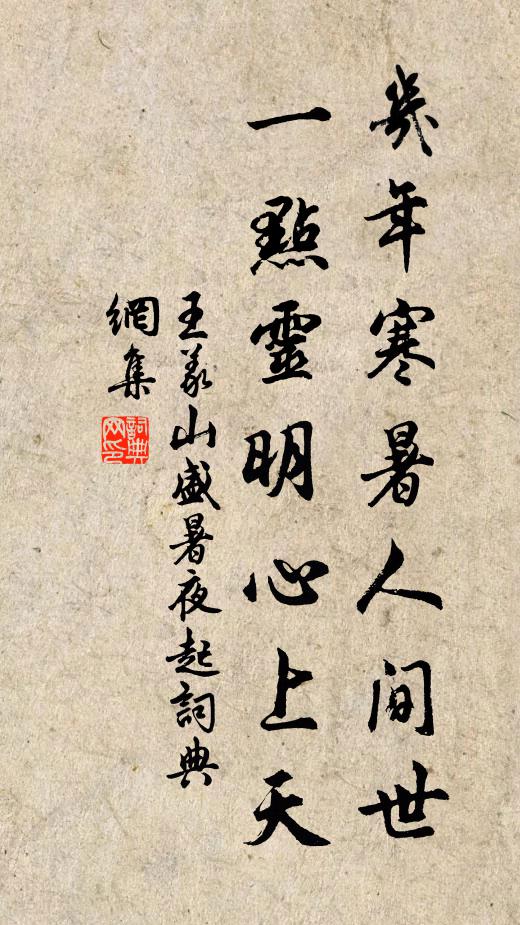 幾年寒暑人間世
一點靈明心上天
王義山盛暑夜起詞典
網集
詞典
网印